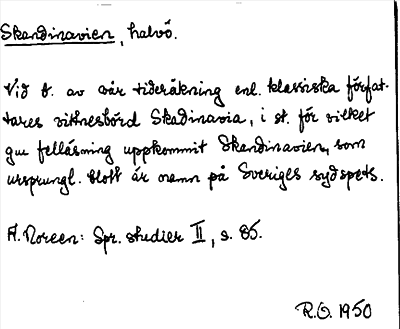 Skandinavien, halvö.
Vid b. av vår tideräkning enl. klassiska förfat-
tares vittnesbörd Skadinavia, i st. för vilket
gm felläsning uppkommit Skandinavien, som
ursprungl. blott är namn på Sveriges sydspets.
A. Noreen: Spr. studier II, s. 85.
R.O. 1950